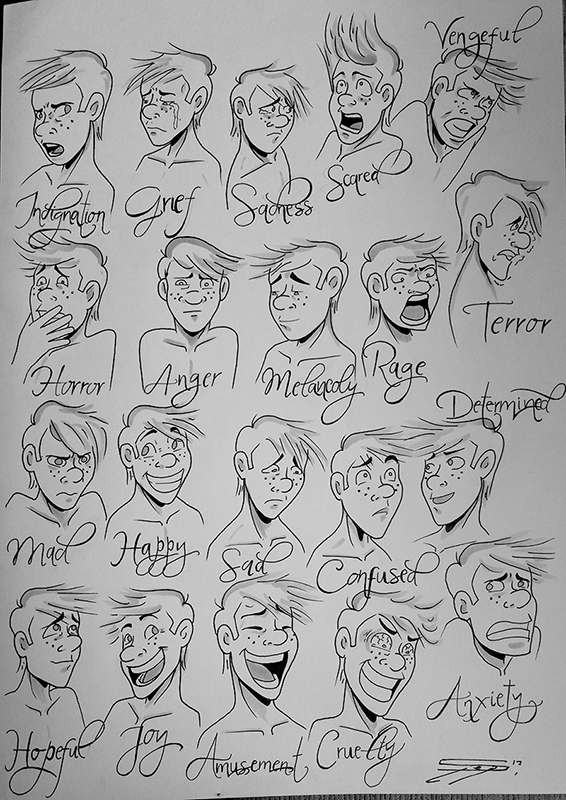 Vengeful
Indignation
Grief
Sadness
Scared
Terror
Horror
Anger
Melancoly
Rage
Determined
Mad
Happy
Sad
Confused
Hopeful
Joy
Amusement
Cruelty
Anxiety